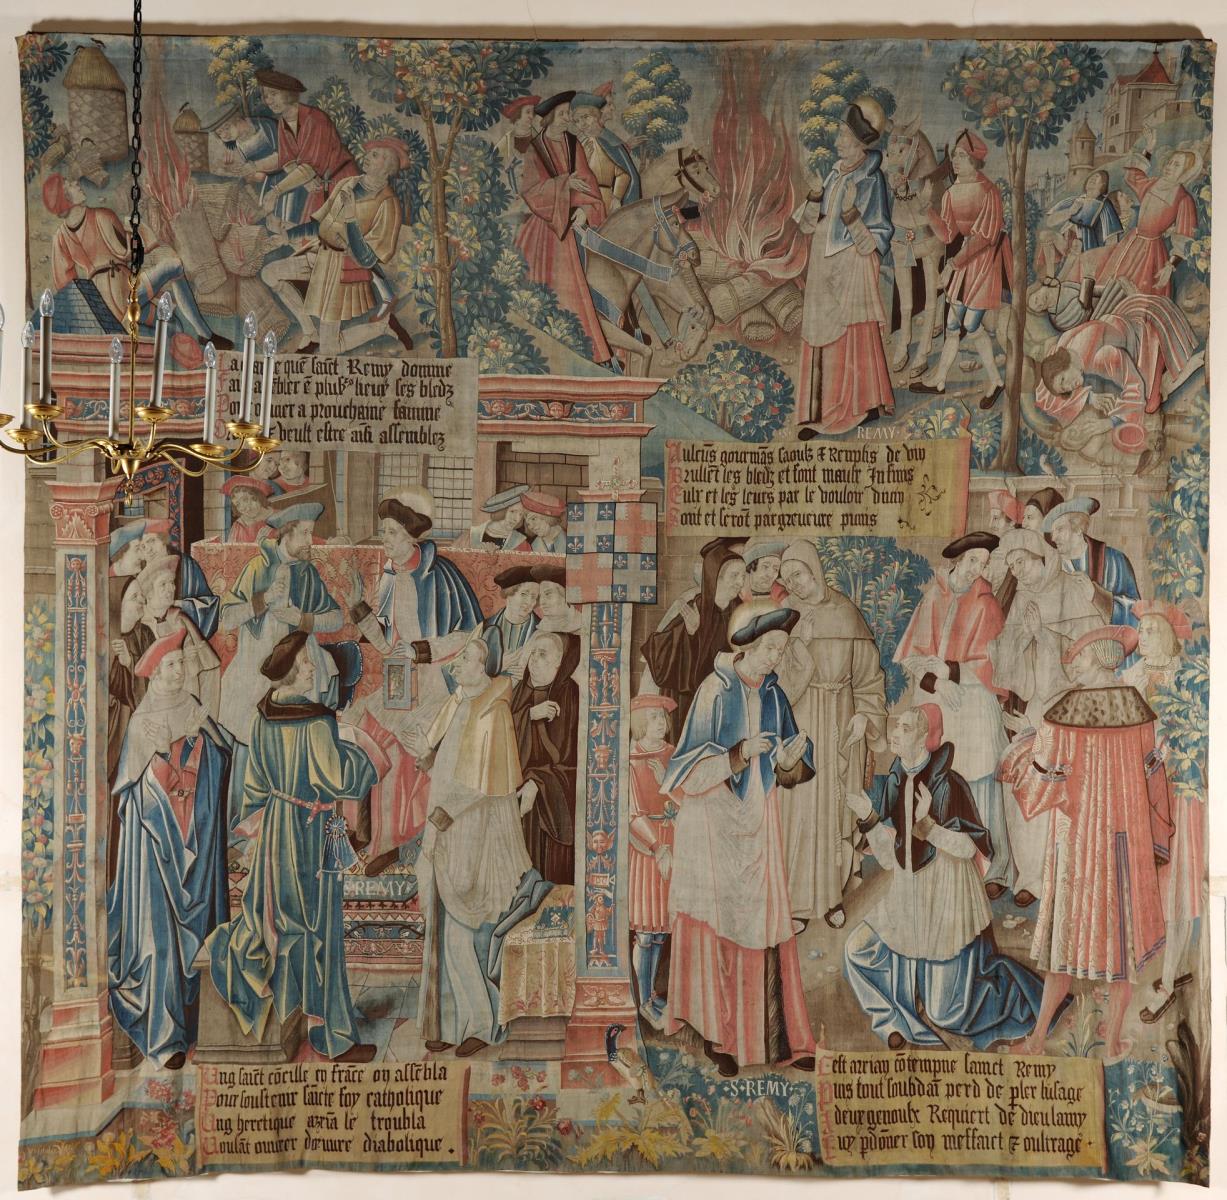 que sait Remy domme
assēbler ē plusrs lieux les bledz
Pour a prouchaine famine
veult estre aīsi assemblez
S REMY
Aulcūs gourmās saoulz & Remplis de vin
Brulēt les bledz et sont maulx Infinis
Eulx et les leurs par le vouloir divin
Sont et serōt par greveure punis
S REMY
S REMY
Ung saīct cōcille en frāce on assēbla
Pour soustenir saīcte foy catholique
Ung heretique ariā le troubla
Voulāt ouvrer dœuvre diabolique
Cest arriay cōtempne sainct Remy
Puis tout soubdaī perd de pler lusage
A deux genoulx Requiert de dieu lamy
Luy pdōner son meffaict & oultrage